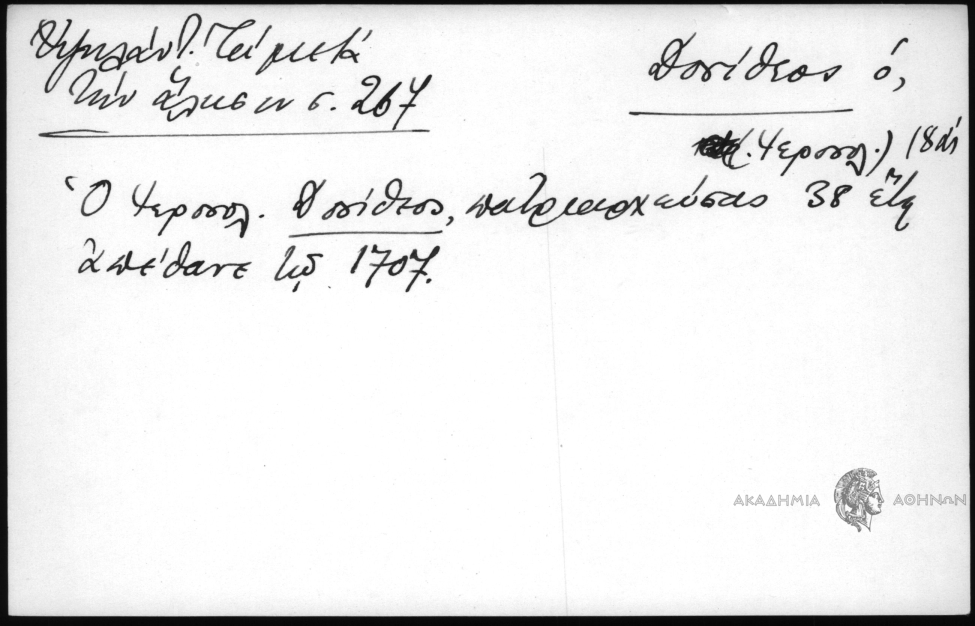 Ὑψηλάντ. Τὰ μετὰ
τὴν ἅλωσιν σ. 267
Δοσίθεος ὁ,
(Ἱεροσολ.) 18 αἰ
Ὁ Ἱεροσολ. Δοσίθεος, πατριαρχεύσας 38 ἔτη
ἀπέθανε τῷ 1707.
ΑΚΑΔΗΜΙΑ ΑΘΗΝΩΝ